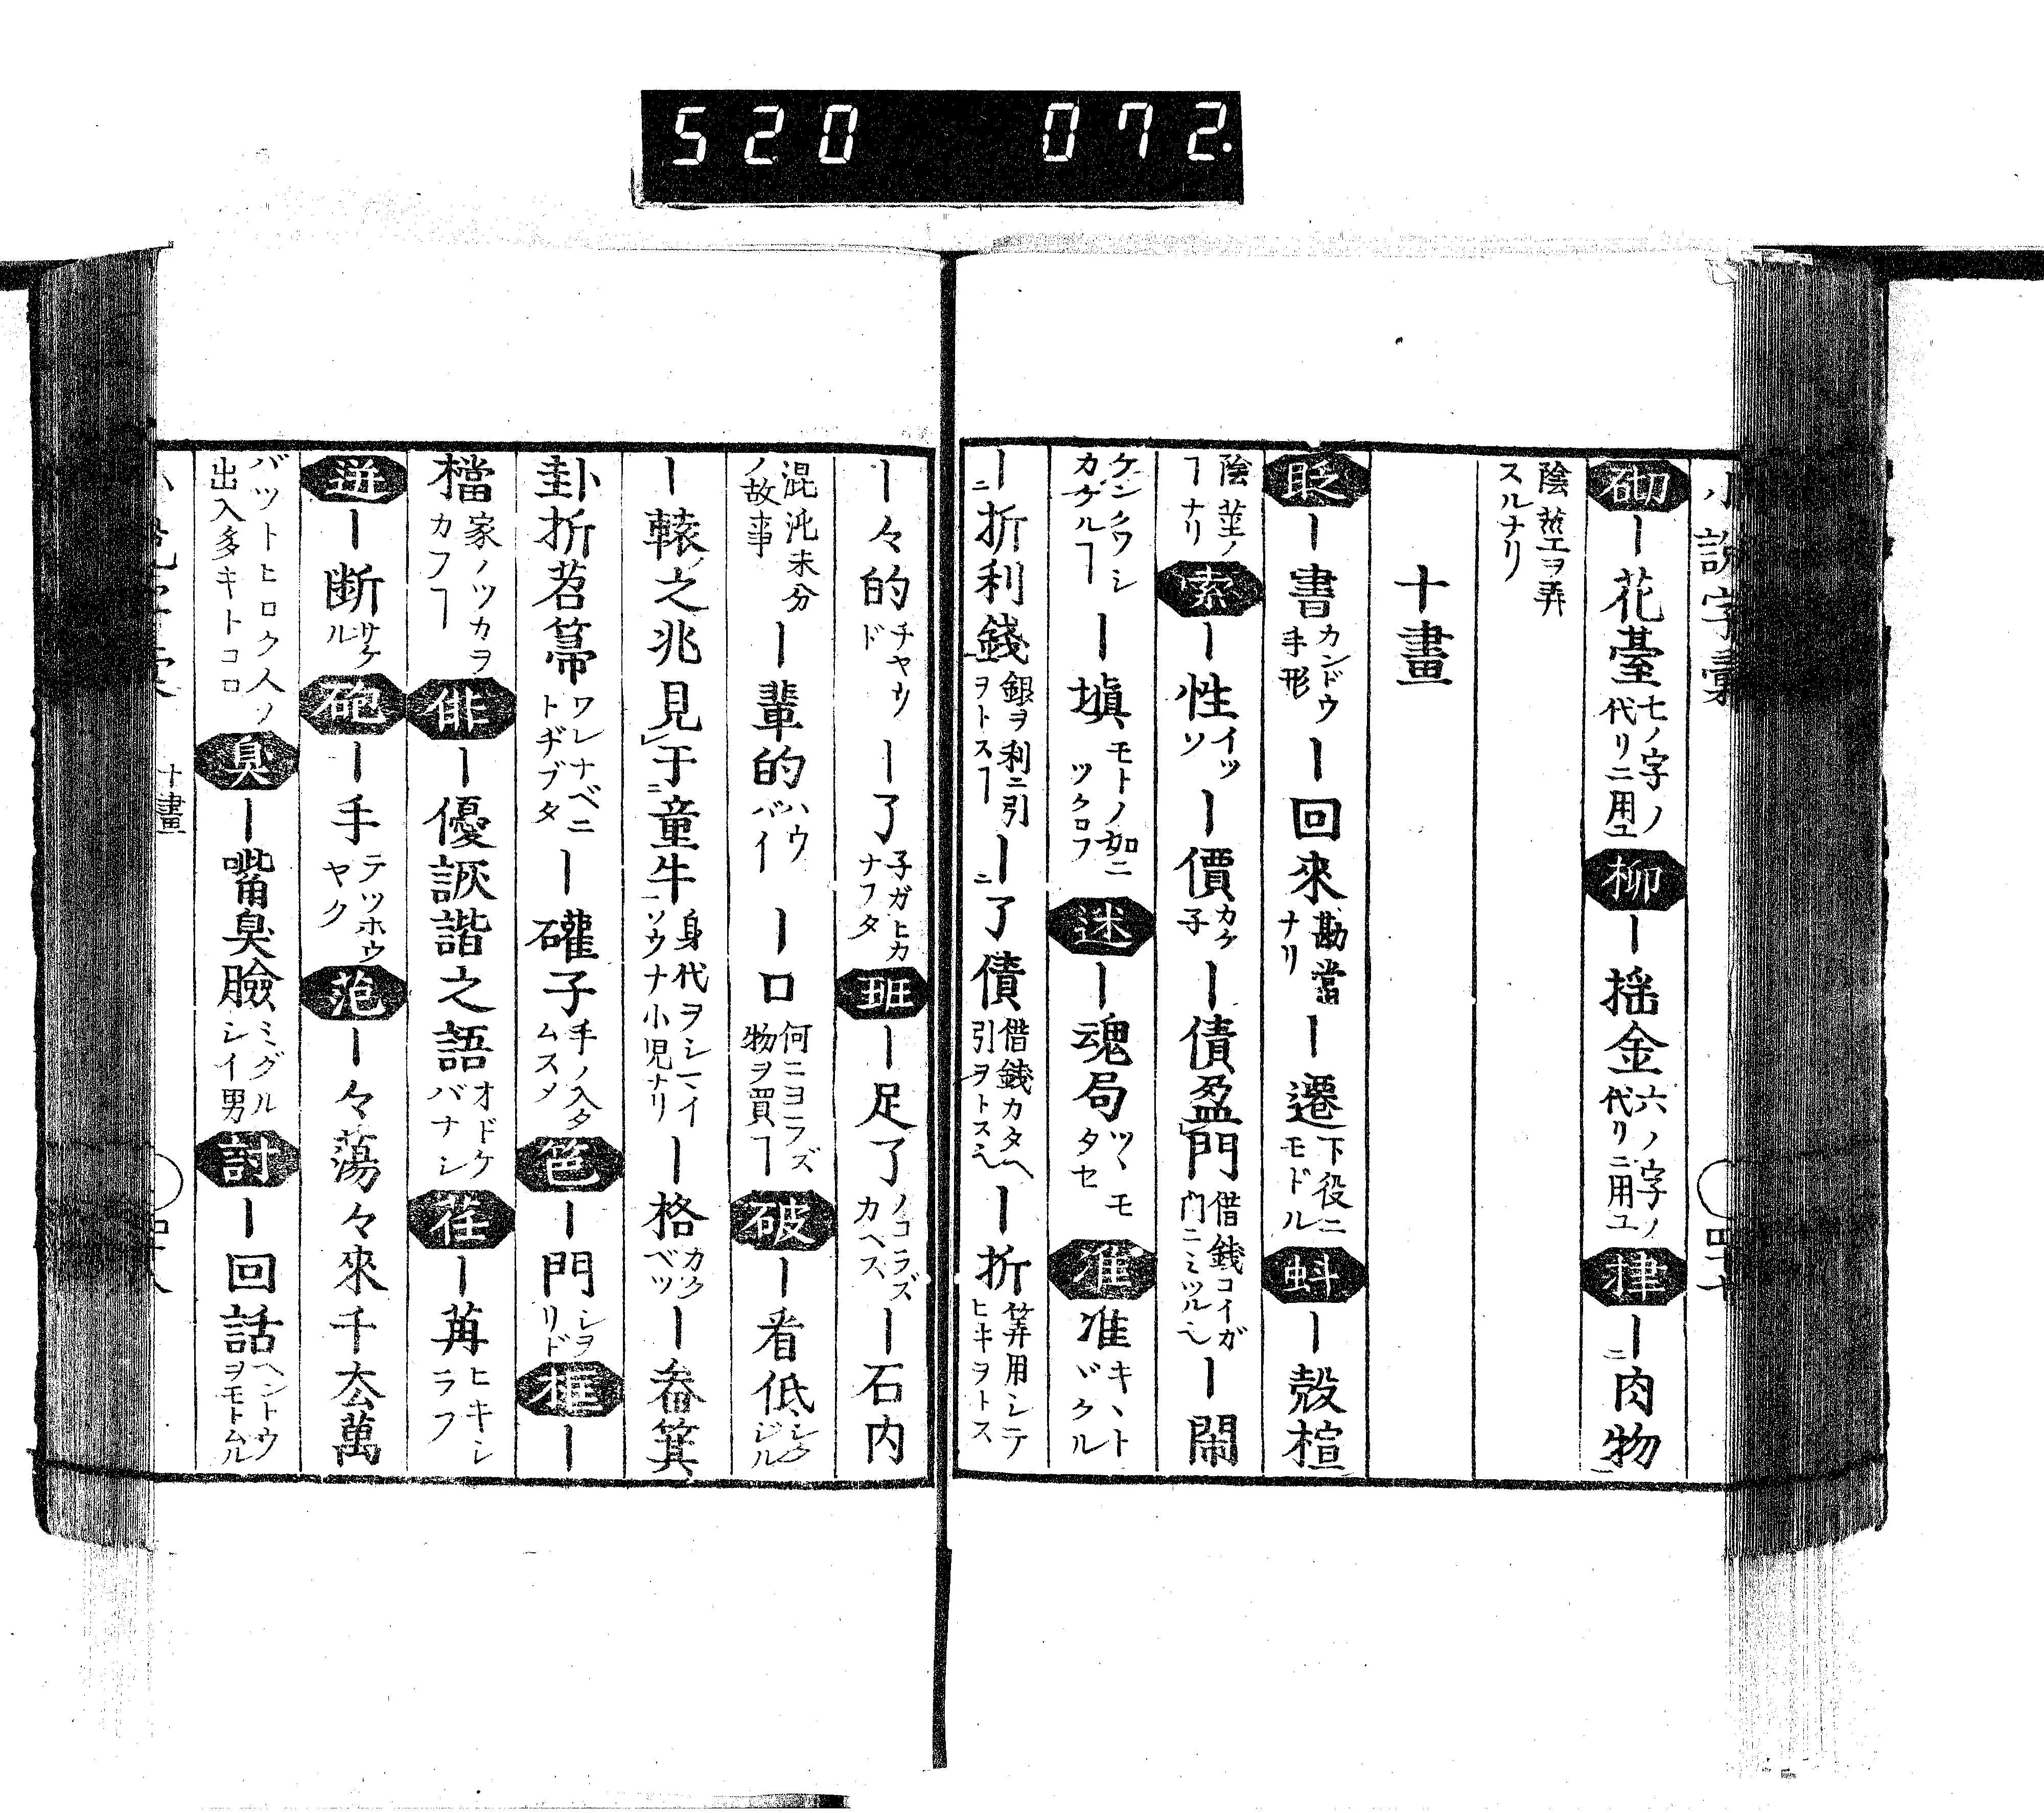 520 072.
小説字彙
砌｜花臺七ノ字ノ代リニ用ユ柳｜揺金六ノ字ノ代リニ用ユ肂｜肉物
陰莖ヲ弄スルナリ
十畫
眨｜書カンドウ手形｜回來勘當ナリ｜遷下役ニモドル蚪｜殻楦
陰莖ノヿナリ索｜性イッソ｜價カケ子｜債盈門借銭コイガ門ニミツル也｜鬧
ケンクワシカケルヿ｜塡モトノ如ニツクロフ迷｜魂局ツヽモタセ准准キヽトヾクル
｜折利錢銀ヲ利ニ引ヲトスヿ｜了債借銭カタヘ引ヲトス也｜折算用シテヒキヲトス
｜々的チヤリド｜了子ガヒカナフタ班｜足了ノコラズカヘス｜石内
混沌未分ノ故事｜輩的ハウバイ｜口何ニヨラズ物ヲ買ヿ破｜看低シクジル
｜轅之兆見于童牛身代ヲシマイソウナ小児ナリ｜格カクベツ｜畚箕
卦折苕箒ワレナベニトヂブタ｜礶子手ノ入タムスメ笆｜門シヲリド框｜
檔家ノツカヲカフヿ俳｜優詼諧之語オドケバナシ荏｜苒ヒキシラフ
迸｜断サケル砲｜手テツホウヤク范｜々蕩々來千厺萬
バツトヒロク人ノ出入多キトコロ臭｜嘴臭臉ミグルシイ男討｜回話ヘントウヲモトムル
十畫